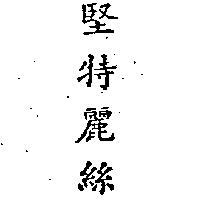 堅特麗絲